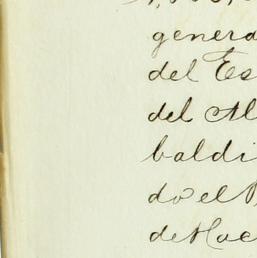 genera
del Es
del Al
baldi
do el
de Hac